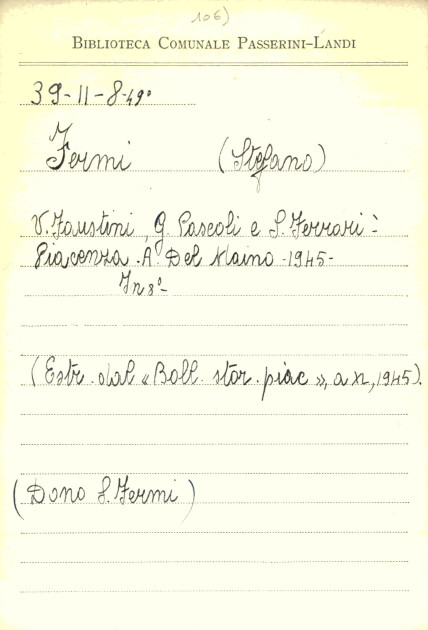 106)
BIBLIOTECA COMUNALE PASSERINI-LANDI
39-11-8-49°
Fermi (Stefano)
V. Faustini, G. Pascoli e S. Ferrari -
Piacenza. A. Del Maino - 1945 -
In 8° -
(Estr. dal « Boll. stor. piac », a XL, 1945).
(Dono S. Fermi)